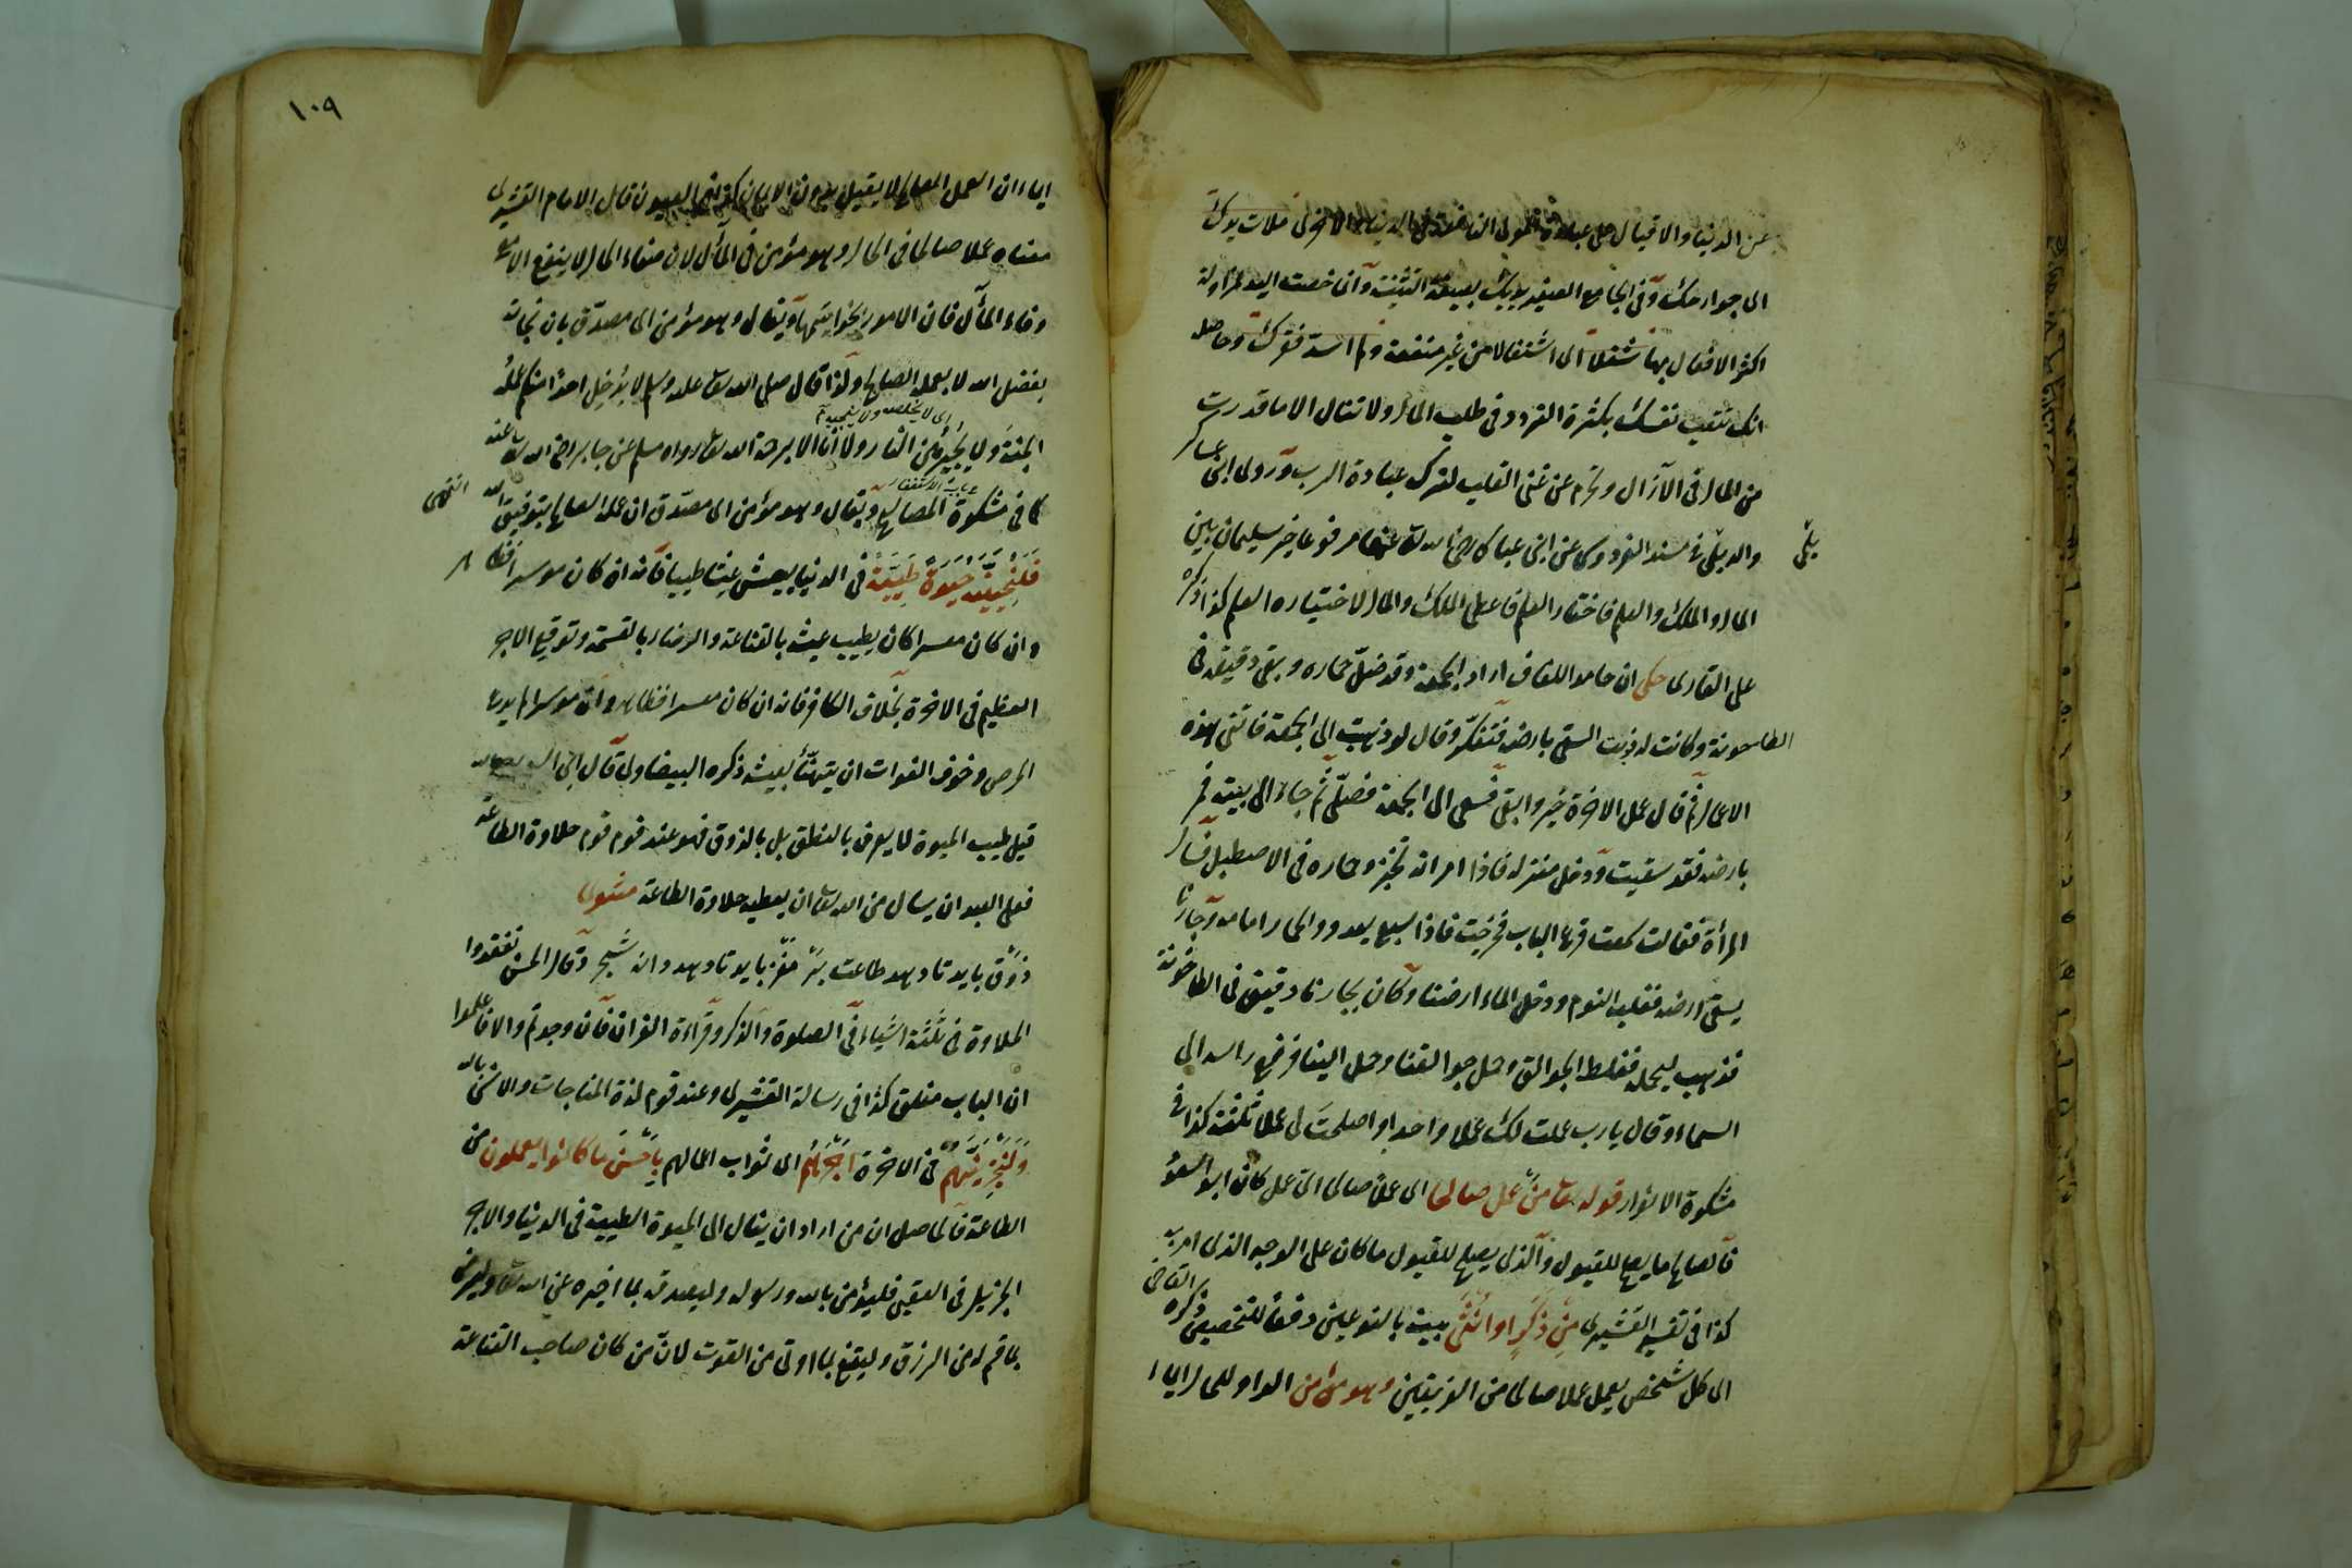 عن الدنيا والاقبال على عبادة المولى النافعة في الدنيا والاخرى ملات يديك
الى جوارحك وفى الجامع الصغير يديك بصيغة التثنية وآن خصت اليد لمزاولة
اكثر الافعال بها شغلا اى اشتغالا من غير منفعة ولم اسد فقرك وحاصله
انك تتعب نفسك بكثرة التردد فى طلب المال ولا تنال الا ما قدرت
من المال فى الآزال وتحرم عن غنى القلب لترك عبادة الرب وروى ابن عساكر
والديلمى فى مسند الفردوس عن ابن عباس رضى الله تعالى عنهما مرفوعا خير سليمان بين
يلمى
المال والملك والعلم فاختار العلم فاعطى الملك والمال لاختياره العلم كذا ذكره
على القارى حكى ان حامد اللفاف اراد الجمعة وقد ضل حماره وبقى دقيقه فى
الطاحونة وكانت له نوبت السقى بارضه فتفكر وقال لو ذهبت الى الجمعة فاتتنى هذه
الاعمال ثم قال عمل الاخرة خير وابقى فسعى الى الجمعة فصلى ثم جاء الى بيته فمر
بارضه فقد سقيت ودخل منزله فاذا امرأته تخبز وحماره فى الاصطبل فسأل
المرأة فقالت سمعت قرع الباب فخرجت فاذا سبع يعدو والحمار امامه وجارنا
يسقى ارضه فغلبه النوم ودخل الماء ارضنا وكان لجارنا دقيق فى الطاحونة
فذهب ليحمله فغلط الجوالق وحمل جوالقنا وحمل الينا فرفع رأسه الى
السماء وقال يا رب عملت لك عملا واحدا واصلحت لى عملا ثلثة كذا فى
مشكوة الانوار قوله تعالى من عمل صالحا اى عملا صالحا اى عمل كان ابو السعود
فالصالح ما يصلح للقبول والذى يصلح للقبول ما كان على الوجه الذى امر به
كذا فى تفسير القشيرى من ذكر او انثى بينه بالنوعين دفعا للتخصيص ذكره القاضى
اى كل شخص يعمل عملا صالحا من الفريقين وهو مؤمن الواو للحال ايماء
١٠٩
ايماء ان العمل الصالح لا يقبل بدون الايمان كذا فى العيون قال الامام القشيرى
معناه عملا صالحا فى الحال وهو مؤمن فى المآل لان صفاء الحال لا ينفع الا مع
وفاء المآل فان الامور بخواتيمها ويقال وهو مؤمن اى مصدق بان نجاته
بفضل الله لا بعمله الصالح ولذا قال صلى الله تعالى عليه وسلم لا يدخل احدا منكم عمله
اى لا يخلصه ولا ينجيه
الجنة ولا يجيره من النار ولا انا الا برحمة الله تعالى رواه مسلم عن جابر رضى الله تعالى عنه
باب الاستغفار
كما فى مشكوة المصابيح ويقال وهو مؤمن اى مصدق ان عمله الصالح بتوفيق الله انتهى
فلنحيينه حيوة طيبة فى الدنيا يعيش عيشا طيبا فانه ان كان موسرا فظاهر
وان كان معسرا كان يطيب عيشه بالقناعة والرضاء بالقسمة وتوقع الاجر
العظيم فى الاخرة بخلاف الكافر فانه ان كان معسرا فظاهر وان موسرا لم يدعه
الحرص وخوف الفوات ان يتهنأ بعيشه ذكره البيضاوى
قيل طيب الحيوة لا يعرف بالنطق بل بالذوق فهو عند قوم حلاوة الطاعة
فعلى العبد ان يسأل من الله تعالى ان يعطيه حلاوة الطاعة مثنوى
ذوق بايد تا دهد طاعات بر مغز بايد تا دهد دانه شجر وقال الحسن تفقدوا
الحلاوة فى ثلثة اشياء فى الصلوة والذكر وقراءة القرآن فان وجدتم والا فاعلموا
ان الباب مغلق كذا فى رسالة القشيرى وعند قوم لذة المناجات والانس بالله
ولنجزينهم فى الاخرة اجرهم اى ثواب اعمالهم باحسن ما كانوا يعملون من
الطاعة فالحاصل ان من اراد ان ينال الى الحيوة الطيبة فى الدنيا والاجر
الجزيل فى العقبى فليؤمن بالله ورسوله وليصدقه بما اخبره عن الله تعالى وليرض
بما قسم له من الرزق وليقنع بما اوتى من القوت لان من كان صاحب القناعة